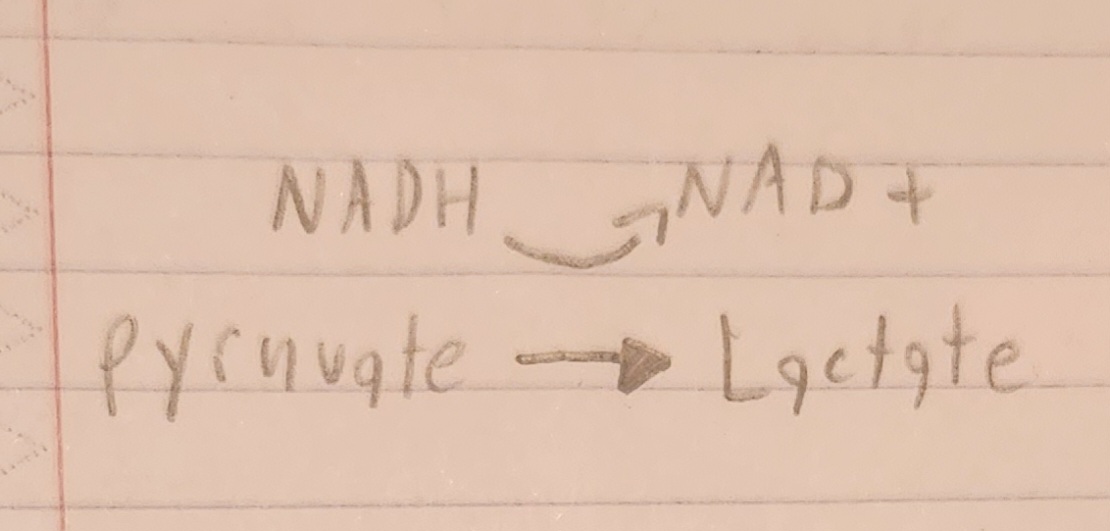 NADH → NAD+
pyruvate → Lactate